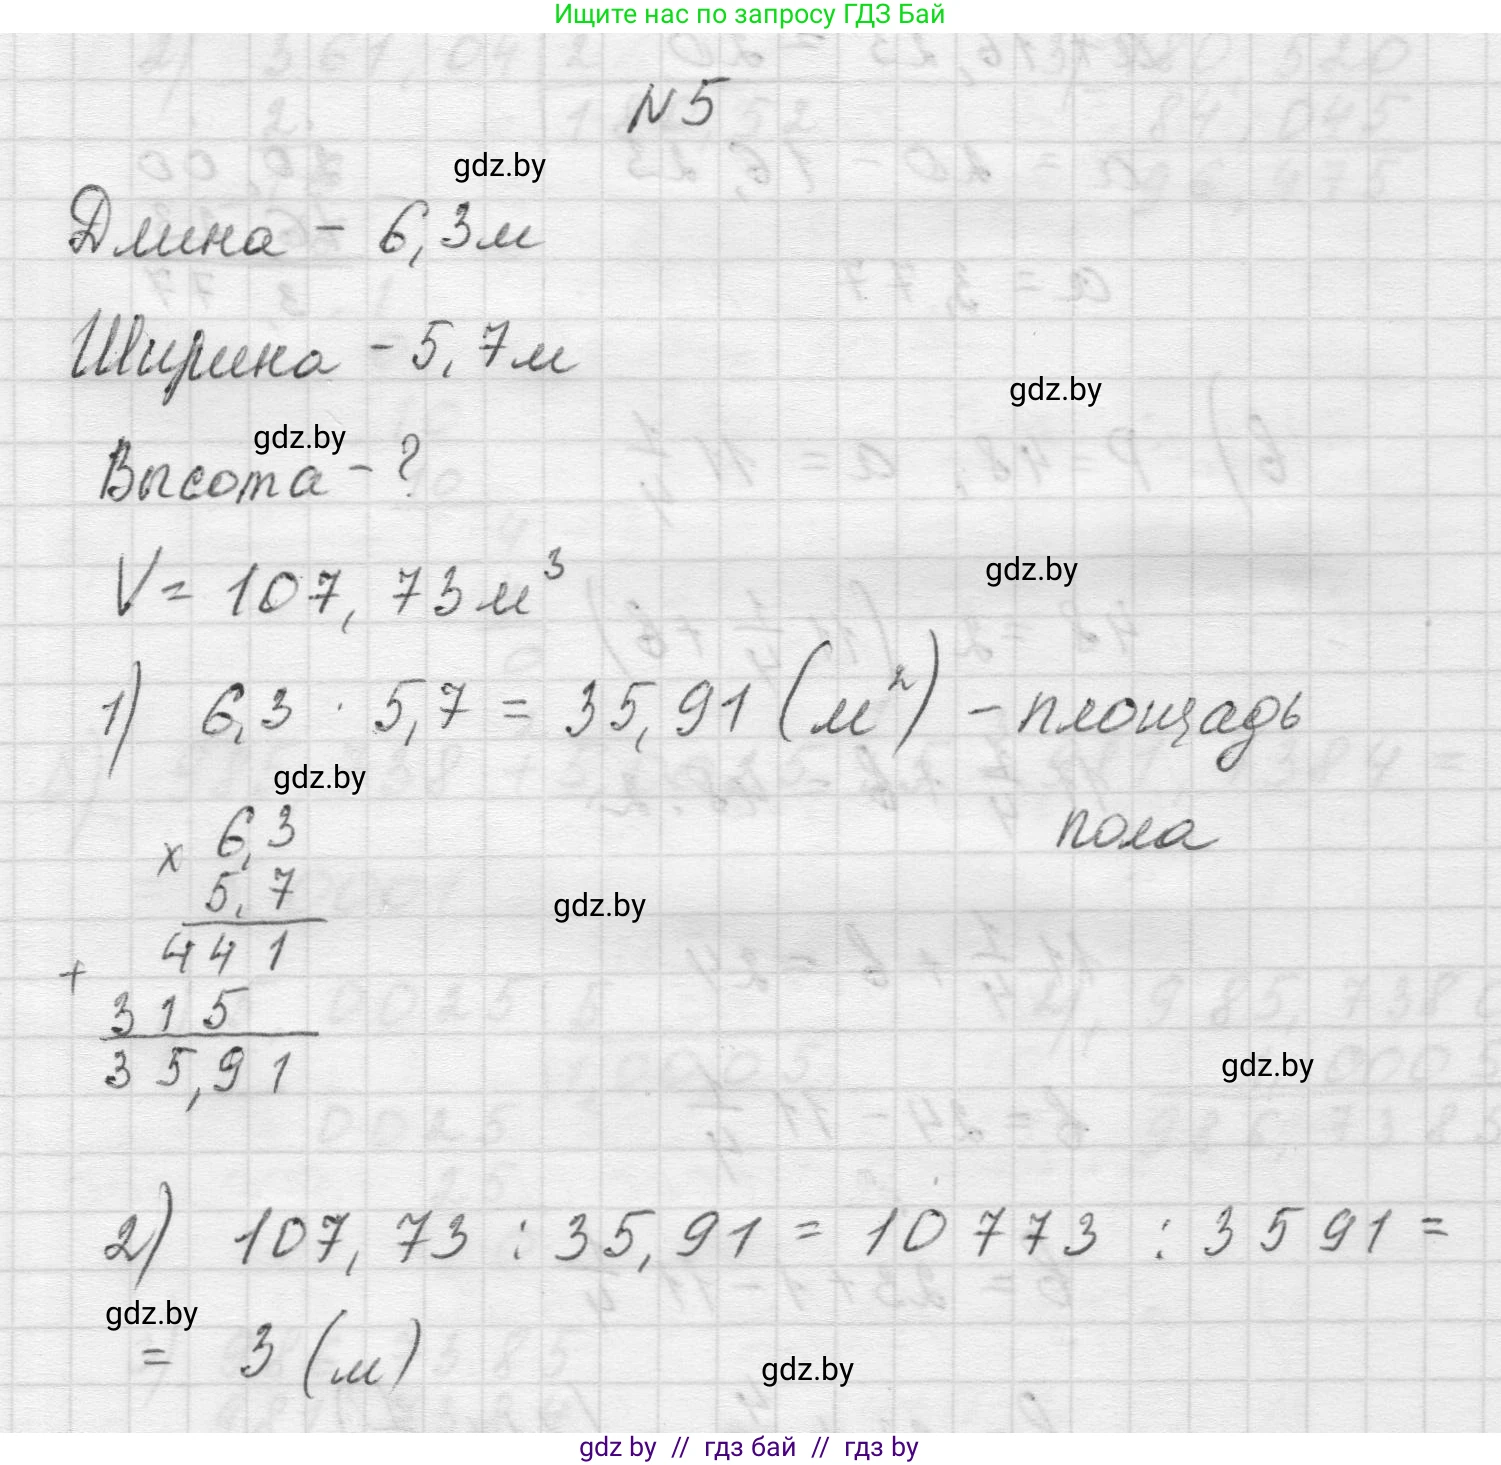 Ищите нас по запросу ГДЗ Бай
N 5
gdz.by
Длина - 6,3 м
Ширина - 5,7 м
gdz.by
gdz.by
Высота - ?
gdz.by
V = 107,73 м³
1) 6,3 · 5,7 = 35,91 (м²) - площадь
пола
gdz.by
x 6,3
5,7
gdz.by
+ 441
315
35,91
gdz.by
2) 107,73 : 35,91 = 10773 : 3591 =
gdz.by
= 3 (м)
gdz.by
gdz by // гдз бай // гдз by